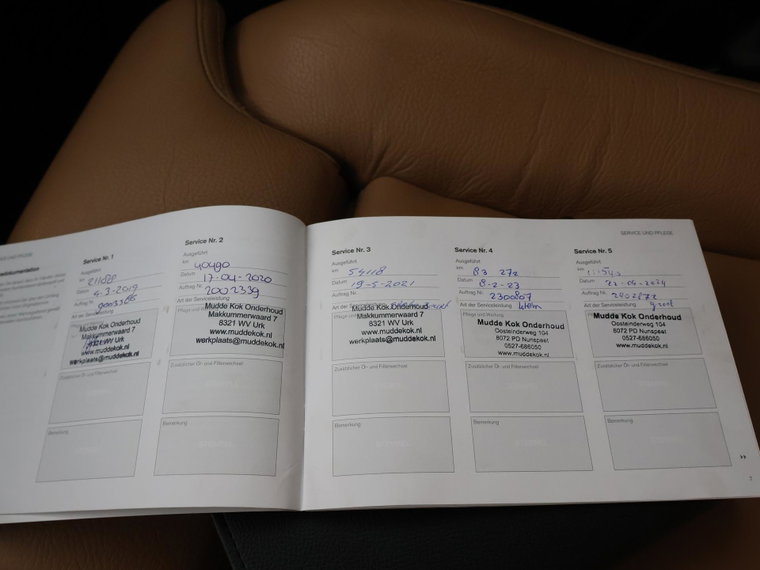 SERVICE UND PFLEGE
Service Nr. 1
Ausgeführt
km
Datum 4-3-2019
Auftrag Nr.
Art der Serviceleistung
Mudde Kok Onderhoud
Makkummerwaard 7
8321 WV Urk
www.muddekok.nl
werkplaats@muddekok.nl
Zusätzlicher Öl- und Filterwechsel
Bemerkung
Service Nr. 2
Ausgeführt
km 40490
Datum 17-04-2020
Auftrag Nr. 2002339
Art der Serviceleistung
Pflege und Wartung
Mudde Kok Onderhoud
Makkummerwaard 7
8321 WV Urk
www.muddekok.nl
werkplaats@muddekok.nl
Zusätzlicher Öl- und Filterwechsel
Bemerkung
STEMPEL
Service Nr. 3
Ausgeführt
km 54118
Datum 19-5-2021
Auftrag Nr.
Art der Serviceleistung
Mudde Kok Onderhoud
Makkummerwaard 7
8321 WV Urk
www.muddekok.nl
werkplaats@muddekok.nl
Zusätzlicher Öl- und Filterwechsel
Bemerkung
STEMPEL
Service Nr. 4
Ausgeführt
km 83 272
Datum 8-2-23
Auftrag Nr. 2300807
Art der Serviceleistung klein
Pflege und Wartung
Mudde Kok Onderhoud
Oosteinderweg 104
8072 PD Nunspeet
0527-686050
www.muddekok.nl
Zusätzlicher Öl- und Filterwechsel
Bemerkung
STEMPEL
Service Nr. 5
Ausgeführt
km
Datum 23-04-2024
Auftrag Nr. 2402872
Art der Serviceleistung groot
Pflege und Wartung
Mudde Kok Onderhoud
Oosteinderweg 104
8072 PD Nunspeet
0527-686050
www.muddekok.nl
Zusätzlicher Öl- und Filterwechsel
Bemerkung
STEMPEL
7